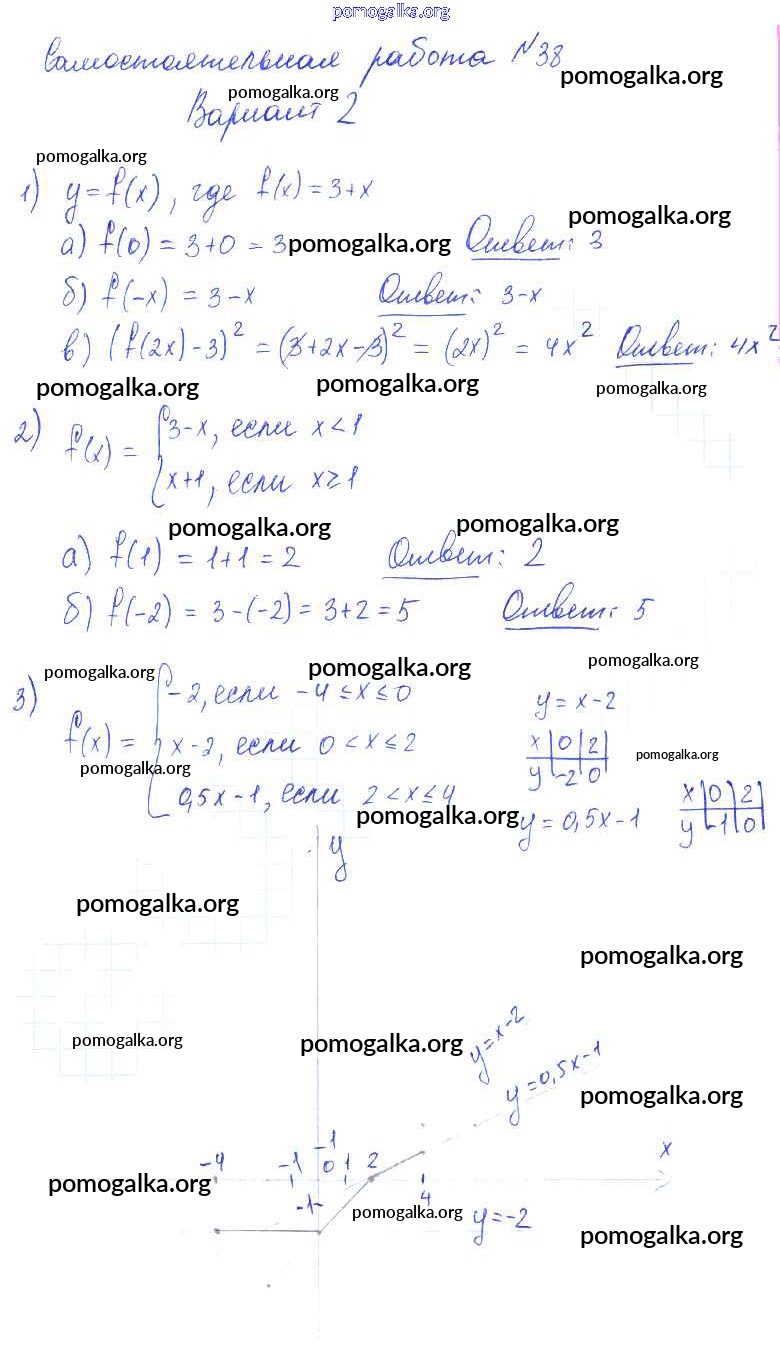 pomogalka.org
Самостоятельная работа №38
pomogalka.org
pomogalka.org
Вариант 2
pomogalka.org
1) y = f(x), где f(x) = 3+x
pomogalka.org
а) f(0) = 3+0 = 3 pomogalka.org Ответ: 3
б) f(-x) = 3-x Ответ: 3-x
в) (f(2x)-3)² = (3+2x-3)² = (2x)² = 4x² Ответ: 4x²
pomogalka.org pomogalka.org pomogalka.org
2) f(x) = { 3-x, если x<1
x+1, если x≥1
pomogalka.org pomogalka.org
а) f(1) = 1+1 = 2 Ответ: 2
б) f(-2) = 3-(-2) = 3+2 = 5 Ответ: 5
pomogalka.org pomogalka.org pomogalka.org
3) f(x) = { -2, если -4≤x≤0
x-2, если 0<x≤2
0,5x-1, если 2<x≤4
y = x-2
x | 0 | 2
y | -2 | 0
pomogalka.org pomogalka.org
pomogalka.org y = 0,5x-1
x | 0 | 2
y | -1 | 0
y
pomogalka.org
pomogalka.org
pomogalka.org pomogalka.org y=x-2
y=0,5x-1 pomogalka.org
-4 -1 -1 0 1 2 x
pomogalka.org 4
-1 pomogalka.org y=-2
pomogalka.org